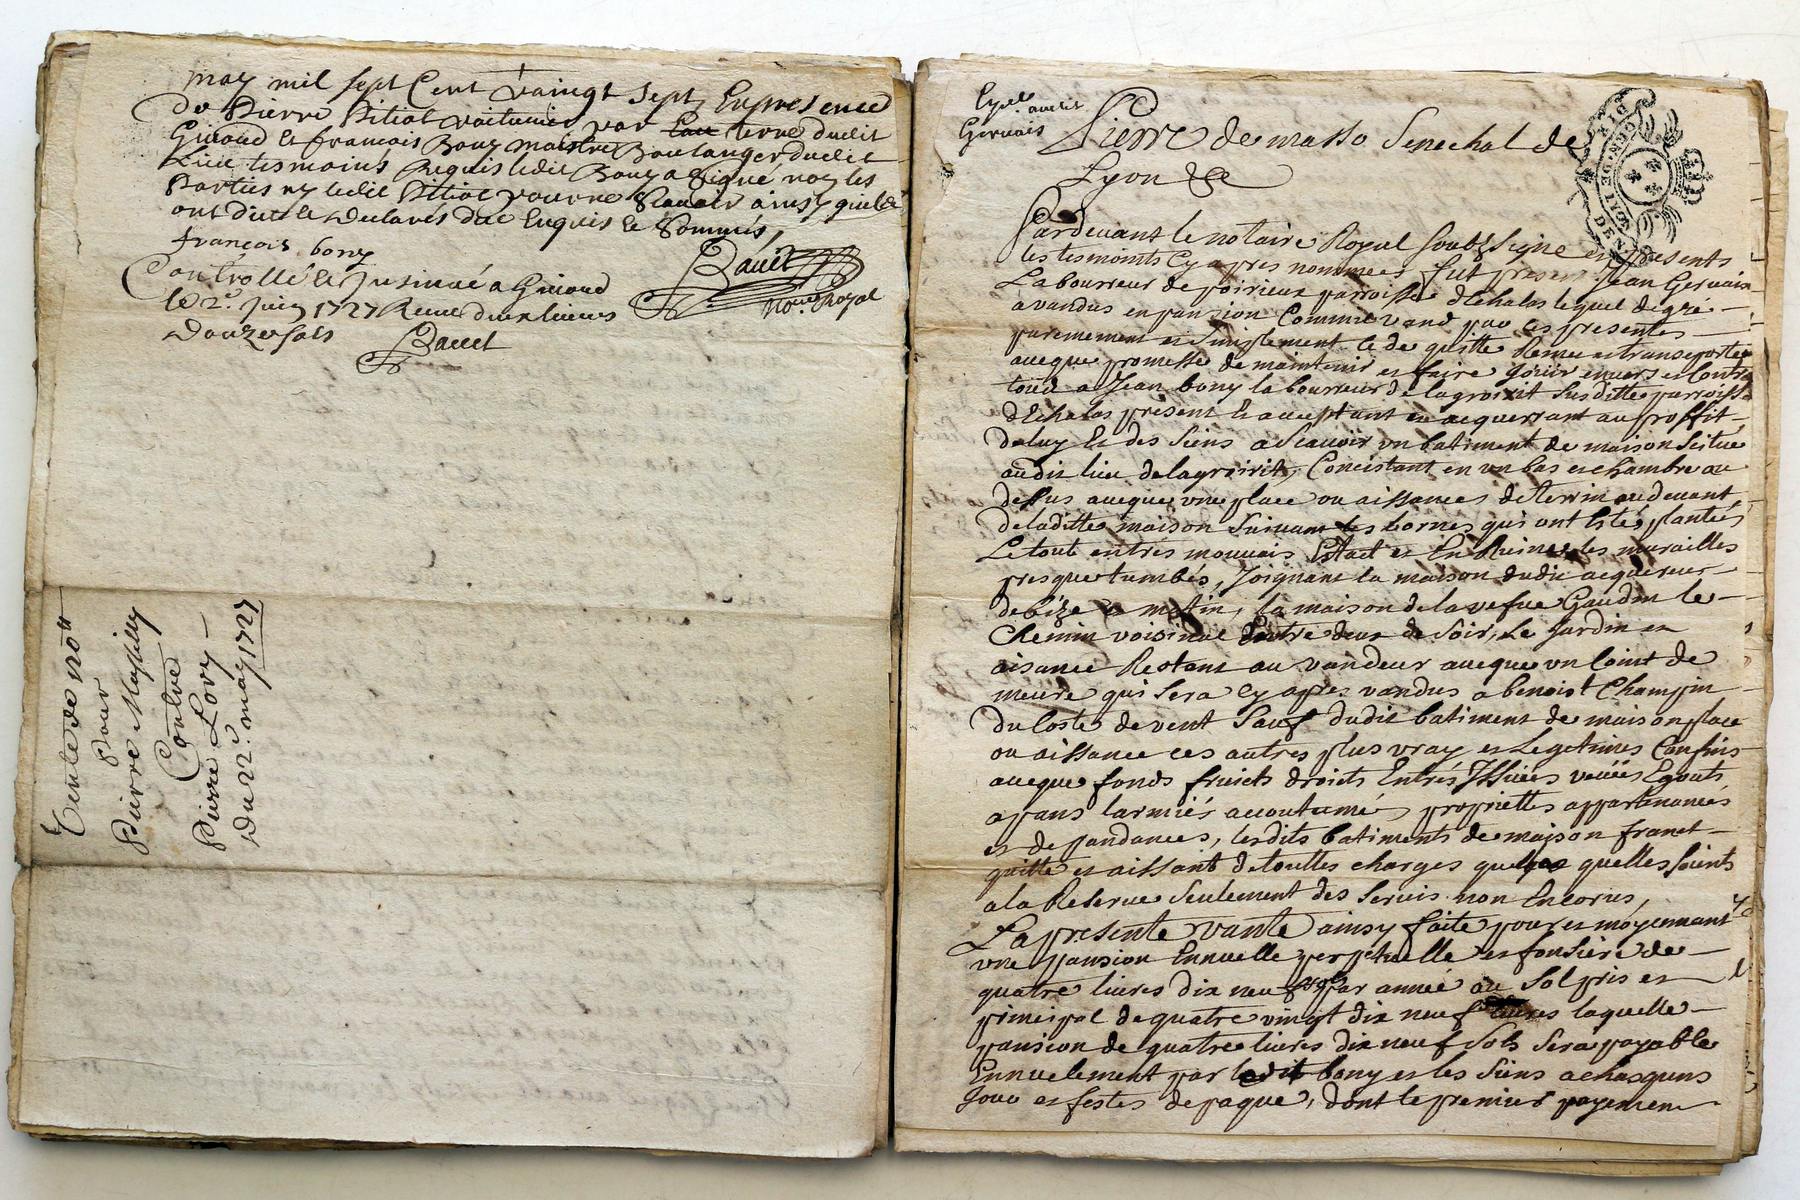 may mil sept Cent vaingt sept, En presence
de Pierre Pitiot voiturier par terre dudit
Givord et françois Bony maistre Boulanger dudit
Lieu tesmoins Requis ledit Bony a signé non les
Parties ny ledit Pitiot pour ne scavoir ainsy quils
ont dit et declarés de ce Enquis et Sommés,
françois bony
Bauet
Controllé et Insinué a Givord
le 2e. Juin 1727 Receu deux livres
douze sols
Nore. Royal
Bauet
Vente de 110#
Pour
Pierre
Contre
Pierre Lory
Du 22e. may 1727
audit
Gervais
Pierre de masso Senechal de
Lyon &a
GEN DE LYON
Pardevant le notaire Royal Soubssigne et presents
les tesmoints Cy apres nommees fut present Jean Gervais
Laboureur de poirieux parroisse dEchalas lequel de gré
a vandus en pansion Comme vand par ces presentes
purement et Simplement ce de quitte Remet et transporte
avecque promesse de maintenir et faire jouir envers et Contre
tous a Jean bony laboureur de lagroirit Susditte parroisse
dEchalas present Et acceptant et acquerrant au proffit
deluy Et des Siens a Scavoir un batiment de maison Scitue
audit lieu delagroirit, Concistant en un bas et chambre au
dessus avecque une place ou aissances de terrin au devant
deladitte maison Suivant les bornes qui ont Estés plantées
Le tout en tres mauvais Estact et En Ruine les murailles
presque tumbés, Joignant la maison dudit acquereur
debize et matin, la maison de la vefve Gaudin le
Chemin voisinal Entre deux de Soir, Le Jardin et
aisance Restant au vandeur avecque un Coint de
meure qui Sera Cy apres vandus a benoist Champin
du Costé de vent Sauf dudit batiment de maison place
ou aissance ces autres plus vray et Legetimes Confins
avecque fonds fruicts droits Entrés Issuies veües Egouts
apans larmiés accoutumé, propriettes appartenances
et depandances, lesdits batiments de maison franct
quitte et aissant de touttes charges quelles Soints
a la Reserve Seulement des Servis non Encorus,
La presente vante ainsy faite pour et moyennant
une pansion Ennuelle perpetuelle et fonsiere de
quatre livres dix neuf sols par année au Sol pris et
prinsipal de quatre vingt dix neuf livres laquelle
pansion de quatre livres dix neuf Sols Sera payable
Ennuelement par ledit bony et les Siens a chasquns
Jour et festes de paque, dont le premier payement